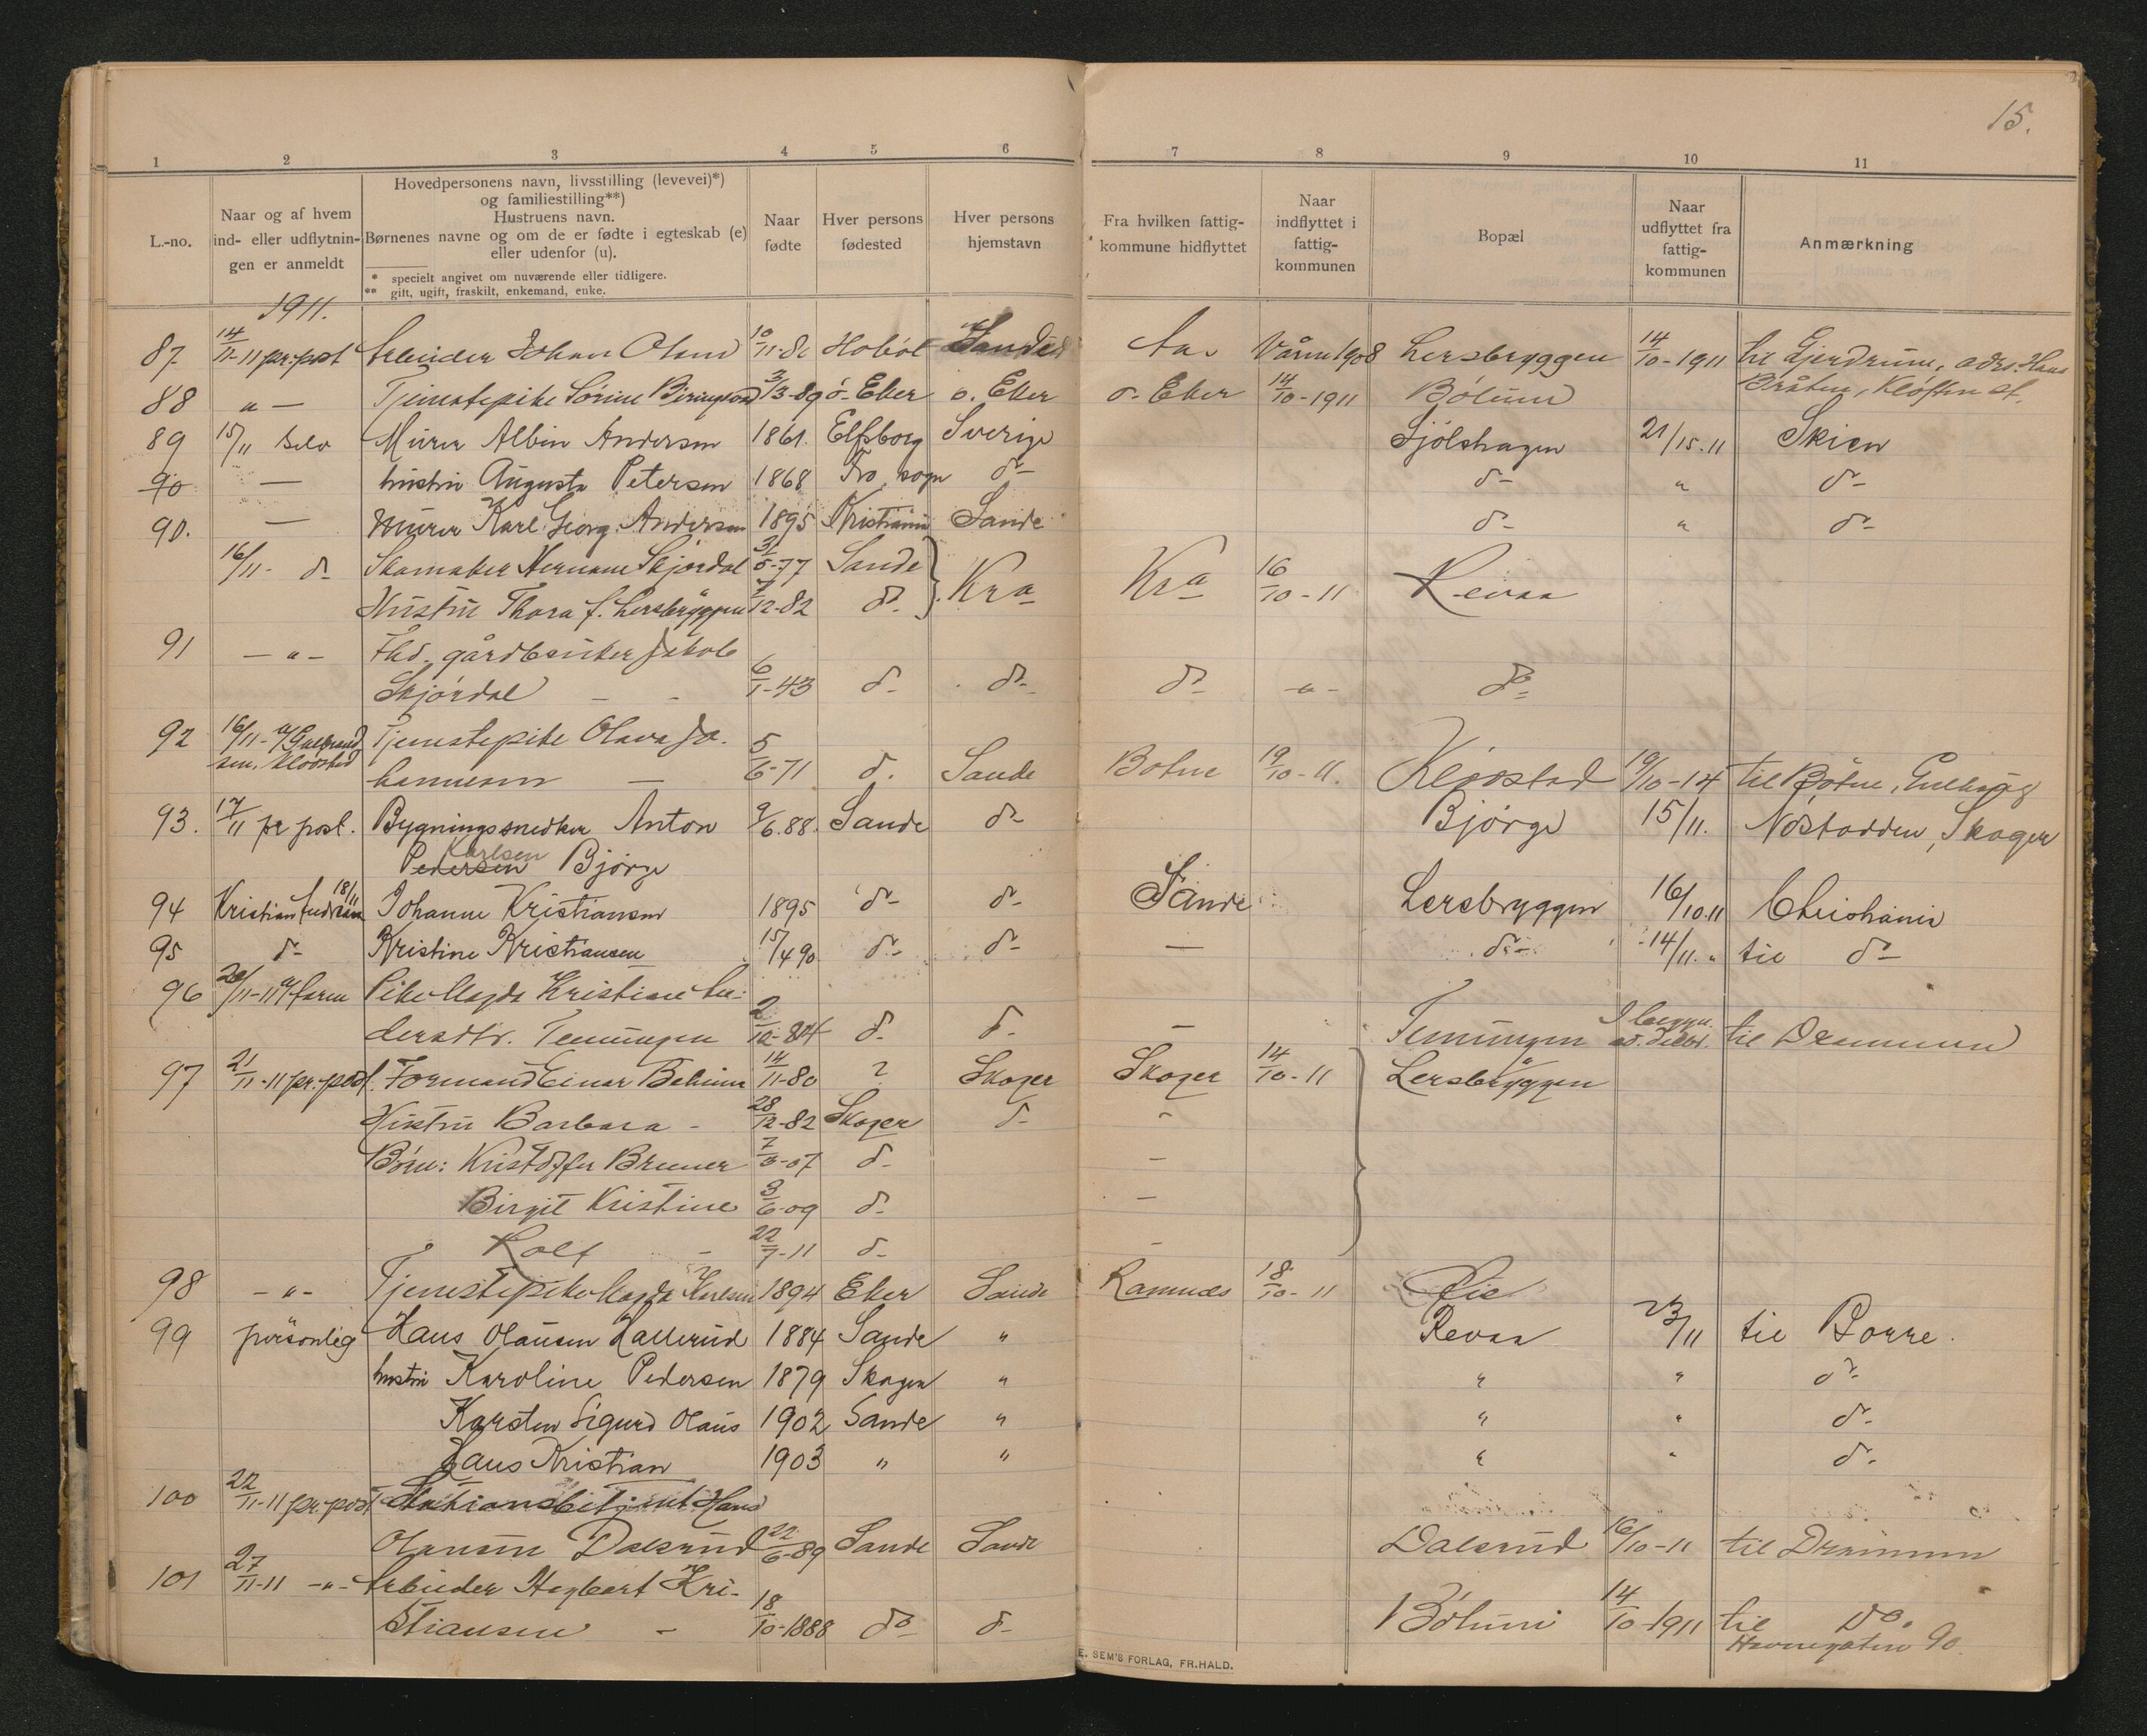 15.
1 2 3 4 5 6 7 8 9 10 11
L.-no.
Naar og af hvem
ind- eller udflytnin-
gen er anmeldt
Hovedpersonens navn, livsstilling (levevei)*)
og familiestilling**)
Hustruens navn.
Børnenes navne og om de er fødte i egteskab (e)
eller udenfor (u).
* specielt angivet om nuværende eller tidligere.
** gift, ugift, fraskilt, enkemand, enke.
Naar
fødte
Hver persons
fødested
Hver persons
hjemstavn
Fra hvilken fattig-
kommune hidflyttet
Naar
indflyttet i
fattig-
kommunen
Bopæl
Naar
udflyttet fra
fattig-
kommunen
Anmærkning
1911.
87 14/11-11 pr. post Arbeider Johan Olsen 10/11-86 Hobøl Sande Aas Våren 1908 Lersbryggen 14/10-1911 til Gjerdrum, adrs. Hans
Bråten, Kløften st.
88 " — Tjenstepike Sørine 3/3-89 ø. Eker ø. Eker ø. Eker 14/10-1911 Bølum
89 15/11 Selv Murer Albin Andersen 1861. Elfsborg Sverige Sjølshagen 21/15.11 Skien
90 — hustru Augusta Petersen 1868 Fro sogn do- do- " do-
90. — Murer Karl Georg Andersen 1895 Kristiania Sande do- " do-
16/11- do- Skomaker Herman Skjørdal 3/5-77 Sande Kra Kra 16/10-11 Revaa
Hustru Thora f. Lersbryggen 7/12-82 do-
91 — " — Fhd. gårdbruker Jakob
Skjørdal — - 6/1-43 do- do- do- - " - do-
92 16/11- a/ Gulbrand
sen, Kløvstad Tjenstepike Olava Jo-
hannesen — 5/6-71 do. Sande Botne 19/10-11. Kløvstad 19/10-14 til Botne, Gulhaug
93. 17/11 pr post. Bygningssnedker Anton 9/6.88. Sande do- Bjørge 15/11. Nøstodden, Skoger
Pedersen Karlsen Bjørge
94 Kristian Andersen 18/11 Johanne Kristiansen 1895 do- do- Sande Lersbryggen 16/10.11 Christiania
95 do- Kristine Kristiansen 15/4 90 do- do- — do- 14/11. " til do-
96 20/11-11 a/ faren Pike Magda Kristiane An-
dersdtr. Temungen 2/12-84 do- do- — Temungen I begyn. til Drammen
97 21/11-11 pr. post. Formand Einar Behrum 14/11-80 ? Skoger Skoger 14/10-11 Lersbryggen
Hustru Barbara - 28/12-82 Skoger do- -
Børn: Kristoffer Bruner 7/3-07 do- —
Birgit Kristine 3/6-09 do- —
Rolf - 22/7-11 do- -
98 - " - Tjenstepike Magda Karlsen 1894 Eker Sande Ramnes 18/10-11 Lie
99 personlig Hans Olausen Hallerud 1884 Sande " Revaa 23/11 til Borre.
hustru Karoline Pedersen 1879 Skoger " " " do-
Karsten Sigurd Olaus 1902 Sande " " " do-
Hans Kristian 1903 " " " " do-
100 22/11-11 pr. post Stationsbetjent Hans
Olausen Dalsrud 22/6-89 Sande Sande Dalsrud 16/10-11 til Drammen
101 27/11-11 - " - Arbeider Hagbart Kri-
stiansen - 18/10-1888 do- do- Bølum 14/10-1911 til Do.
Havnegaten 90.
E. SEM'S FORLAG, FR.HALD.